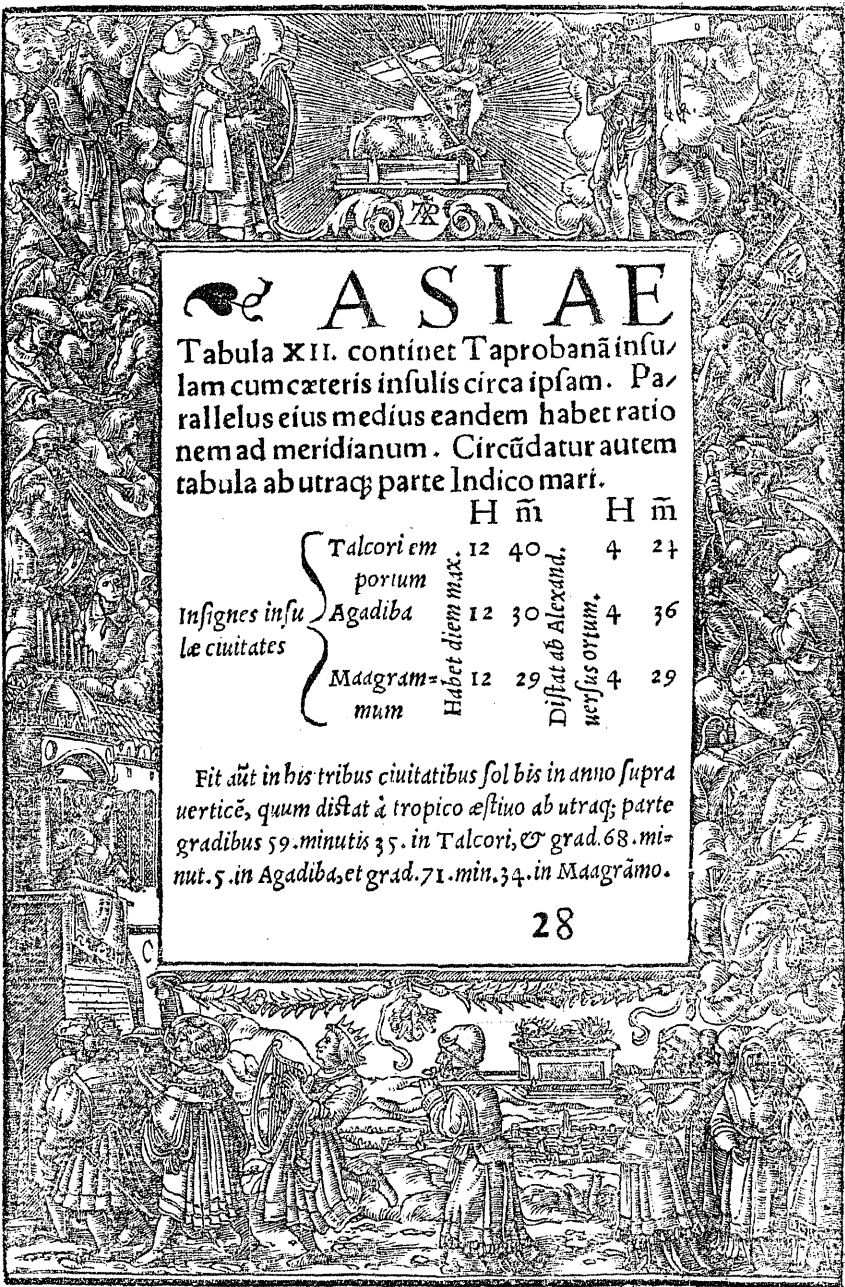 ASIAE
Tabula XII. continet Taprobanã inſu/
lam cum cæteris inſulis circa ipſam. Pa/
rallelus eius medius eandem habet ratio
nem ad meridianum. Circũdatur autem
tabula ab utraq; parte Indico mari.
H m̃ H m̃
Inſignes inſu
læ ciuitates
Talcori em
porium
Habet diem max.
12 40
Diſtat ab Alexand.
uerſus ortum.
4 27
Agadiba 12 30 4 36
Maagram=
mum
12 29 4 29
Fit aũt in his tribus ciuitatibus ſol bis in anno ſupra
uerticẽ, quum diſtat à tropico æſtiuo ab utraq; parte
gradibus 59. minutis 35. in Talcori, & grad. 68. mi=
nut. 5. in Agadiba, et grad. 71. min. 34. in Maagrãmo.
28